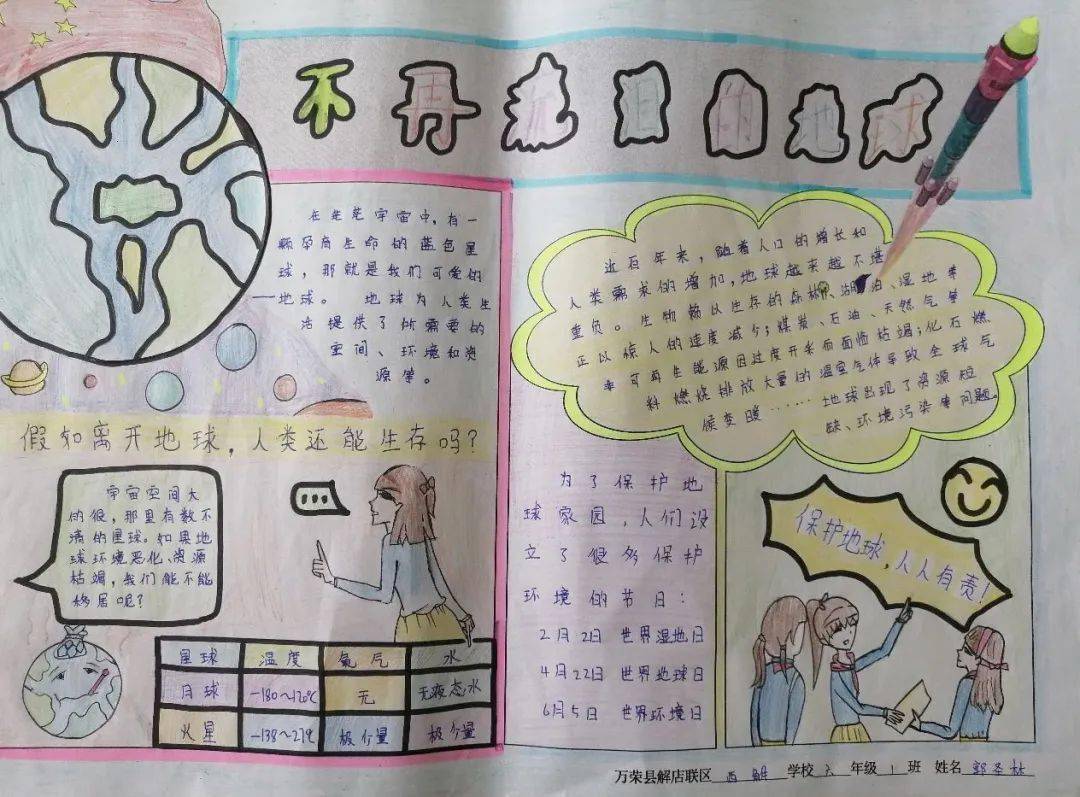 不再危日的地球
在茫茫宇宙中，有一
颗孕育生命的蓝色星
球，那就是我们可爱的
——地球。 地球为人类生
活提供了所需要的
空间、环境和资
源等。
近百年来，随着人口的增长和
人类需求的增加，地球越来越不堪
重负。生物赖以生存的森林、湖泊、湿地等
正以惊人的速度减少；煤炭、石油、天然气等
不可再生能源因过度开采而面临枯竭；化石燃
料燃烧排放大量的温室气体导致全球气
候变暖……地球出现了资源短
缺、环境污染等问题。
假如离开地球，人类还能生存吗？
宇宙空间大
的很，那里有数不
清的星球。如果地
球环境恶化、资源
枯竭，我们能不能
移居呢？
...
星球 温度 氧气 水
月球 -180~120℃ 无 无液态水
火星 -138~27℃ 极少量 极少量
为了保护地
球家园，人们设
立了很多保护
环境的节日：
2月2日 世界湿地日
4月22日 世界地球日
6月5日 世界环境日
保护地球，人人有责！
万荣县解店联区 西解 学校 六 年级 1 班 姓名